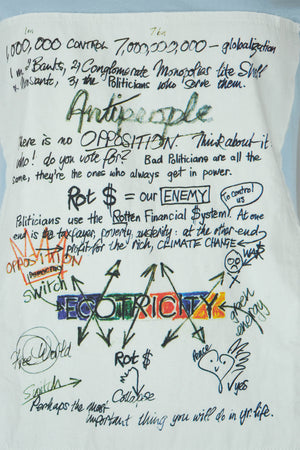 1m 7bn
1,000,000 CONTROL 7,000,000,000 – globalization
1 m = 1) Banks, 2) Conglomerate Monopolies like Shell
& Monsanto, 3) the Politicians who serve them.
Antipeople
There is no OPPOSITION. Think about it
who! do you vote for? Bad Politicians are all the
same, they're the ones who always get in power.
Rot $ = our ENEMY To control us
Politicians use the (Rotten Financial $ystem). At one
end is the taxpayer, poverty, austerity: at the other end–
profit for the rich, CLIMATE CHANGE & WAR$
OPPOSITION
Democracy
Switch
ECOTRICITY
green energy
Free World
Rot $
Peace
yes
Switch
Collapse
Perhaps the most
important thing you will do in yr. life.